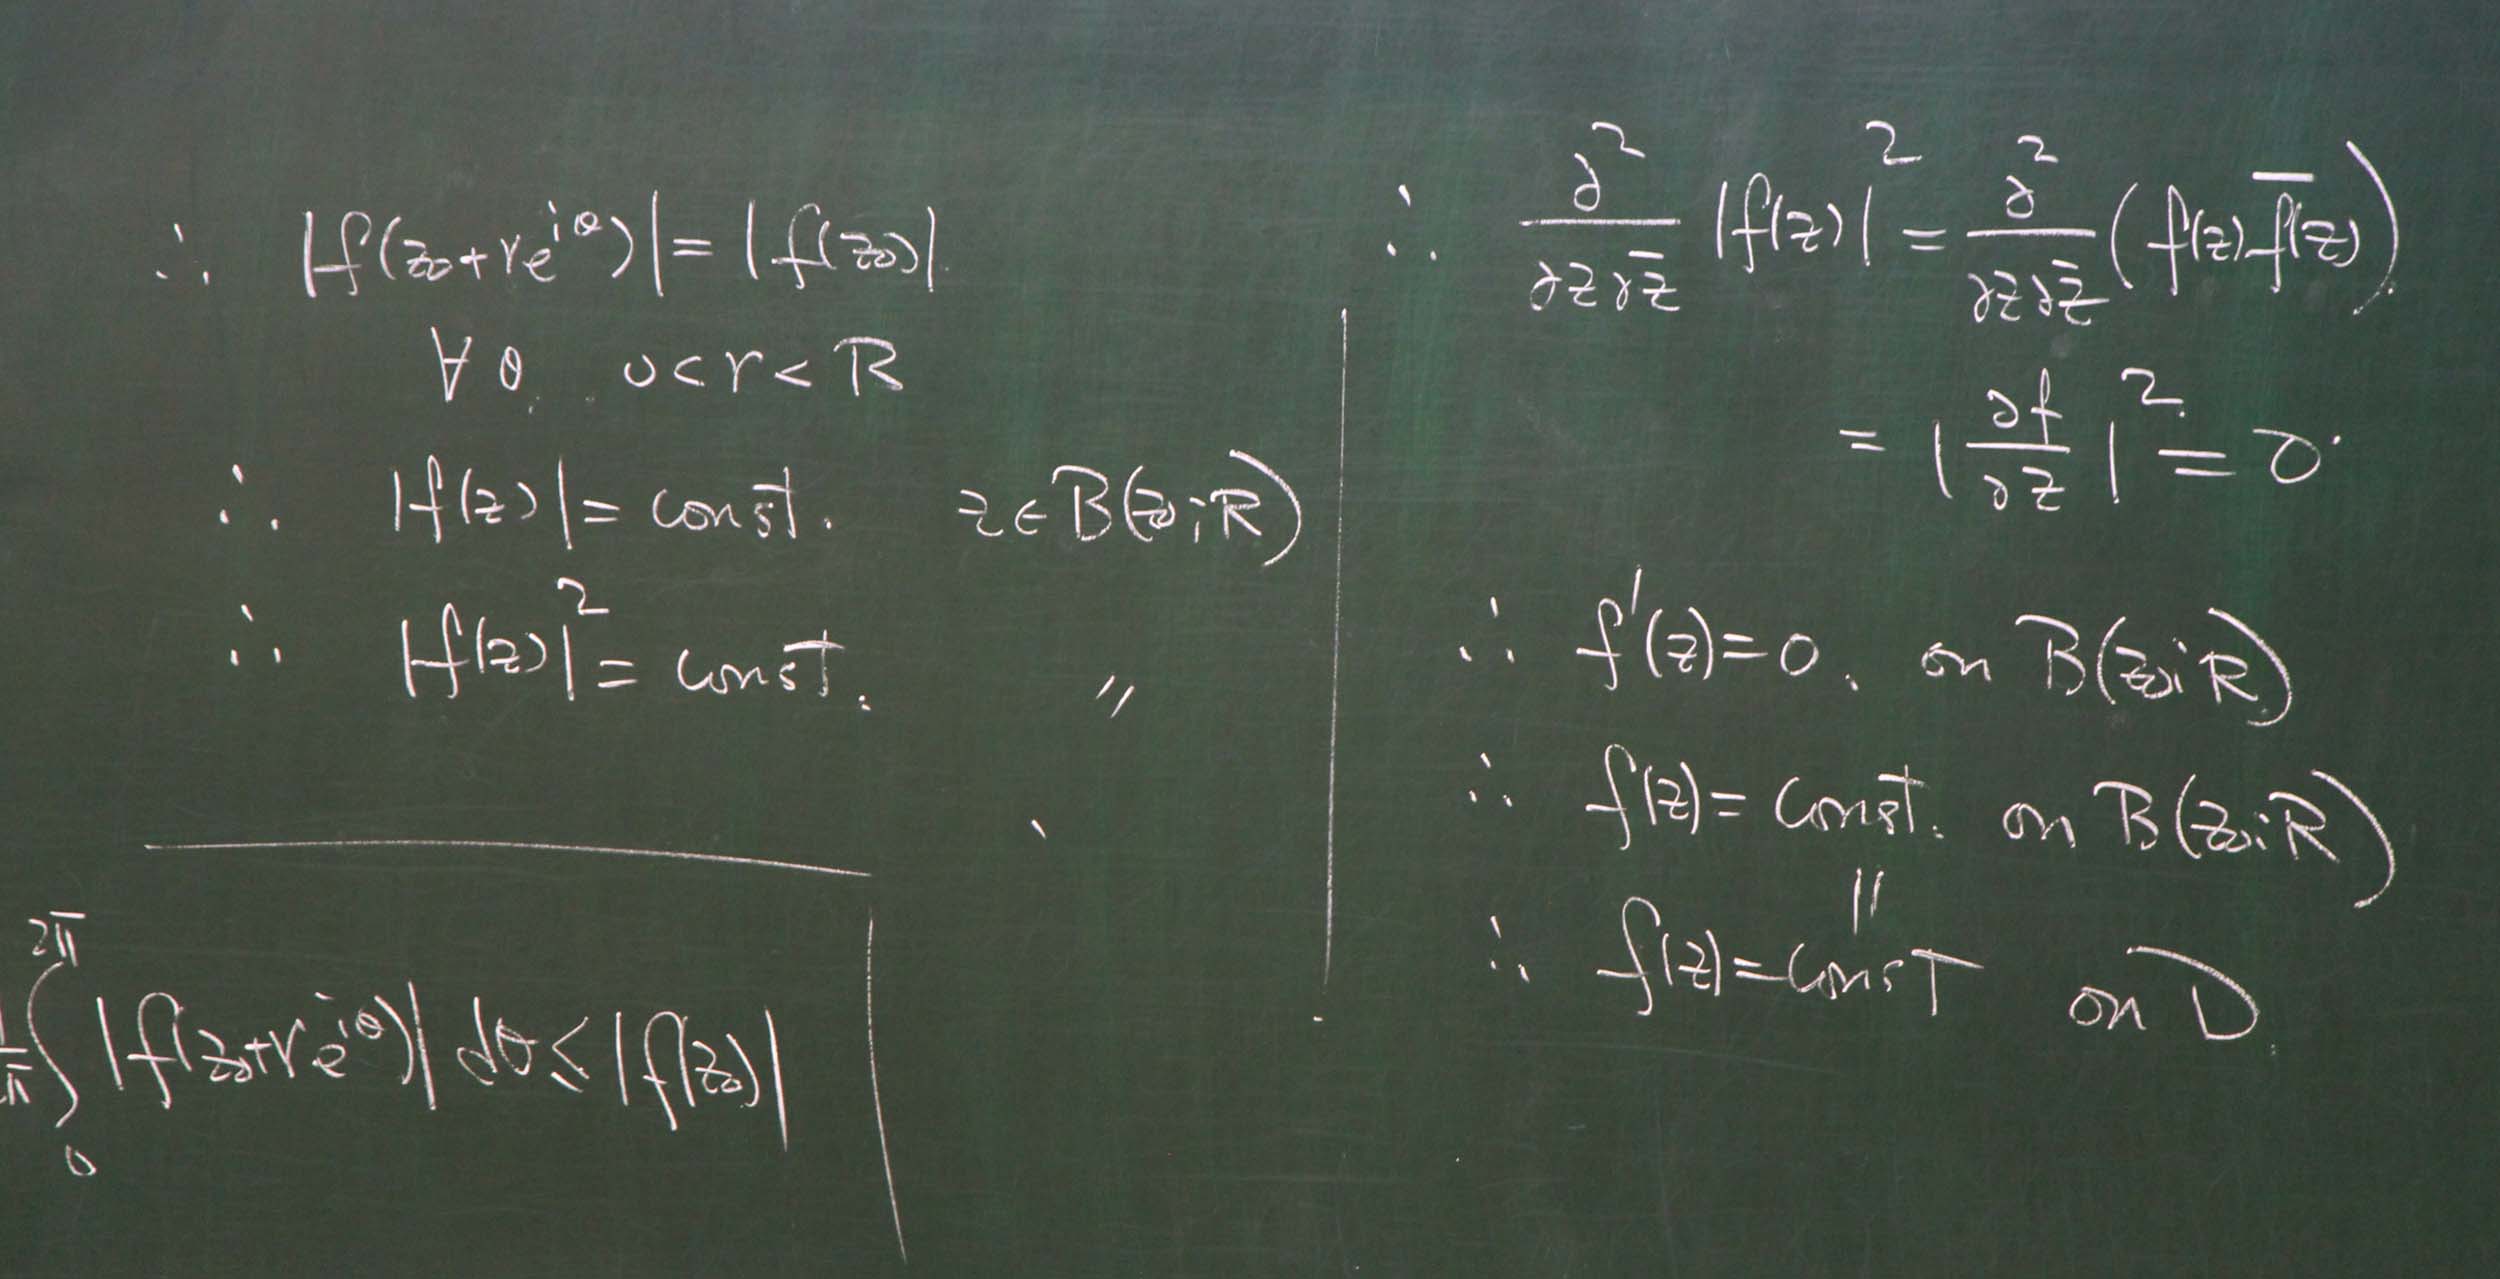 ∴ |f(z₀+re^{iθ})| = |f(z₀)|.
∀θ, 0<r<R
∴ |f(z)| = const. z∈B(z₀;R)
∴ |f(z)|² = const. 〃
1/2π ∫₀^{2π} |f(z₀+re^{iθ})| dθ ≤ |f(z₀)|
∴ ∂²/∂z∂z̅ |f(z)|² = ∂²/∂z∂z̅ (f(z)\overline{f(z)}).
= |∂f/∂z|² = 0.
∴ f'(z)=0. on B(z₀;R)
∴ f(z) = const. on B(z₀;R)
||
∴ f(z) = const on D.